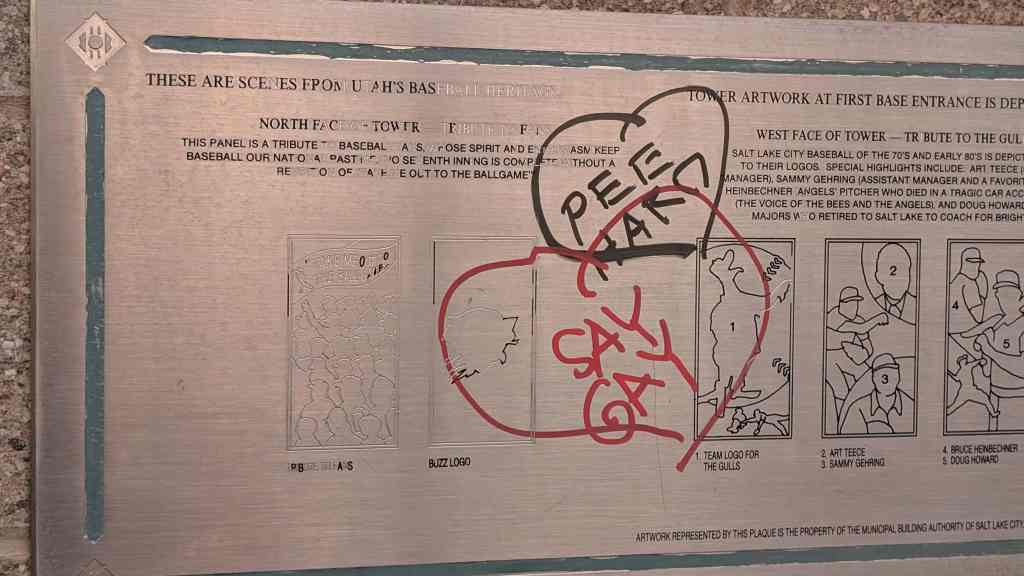 THESE ARE SCENES FROM UTAH'S BASEBALL HERITAGE
NORTH FACE OF TOWER — TRIBUTE TO FANS
THIS PANEL IS A TRIBUTE TO BASEBALL FANS, WHOSE SPIRIT AND ENTHUSIASM KEEP
BASEBALL OUR NATIONAL PASTIME. NO SEVENTH INNING IS COMPLETE WITHOUT A
OF TAKE ME OUT TO THE BALLGAME"
BUZZ LOGO
PEE
HARD
SAY
GAY
TOWER ARTWORK AT FIRST BASE ENTRANCE IS DEP
WEST FACE OF TOWER — TRIBUTE TO THE GUL
SALT LAKE CITY BASEBALL OF THE 70'S AND EARLY 80'S IS DEPICT
TO THEIR LOGOS. SPECIAL HIGHLIGHTS INCLUDE: ART TEECE (
MANAGER), SAMMY GEHRING (ASSISTANT MANAGER AND A FAVORIT
HEINBECHNER (ANGELS' PITCHER WHO DIED IN A TRAGIC CAR ACC
(THE VOICE OF THE BEES AND THE ANGELS), AND DOUG HOWARD
MAJORS WHO RETIRED TO SALT LAKE TO COACH FOR BRIGH
1
2
3
4
5
1. TEAM LOGO FOR
THE GULLS
2. ART TEECE
3. SAMMY GEHRING
4. BRUCE HEINBECHNER
5. DOUG HOWARD
ARTWORK REPRESENTED BY THIS PLAQUE IS THE PROPERTY OF THE MUNICIPAL BUILDING AUTHORITY OF SALT LAKE CITY